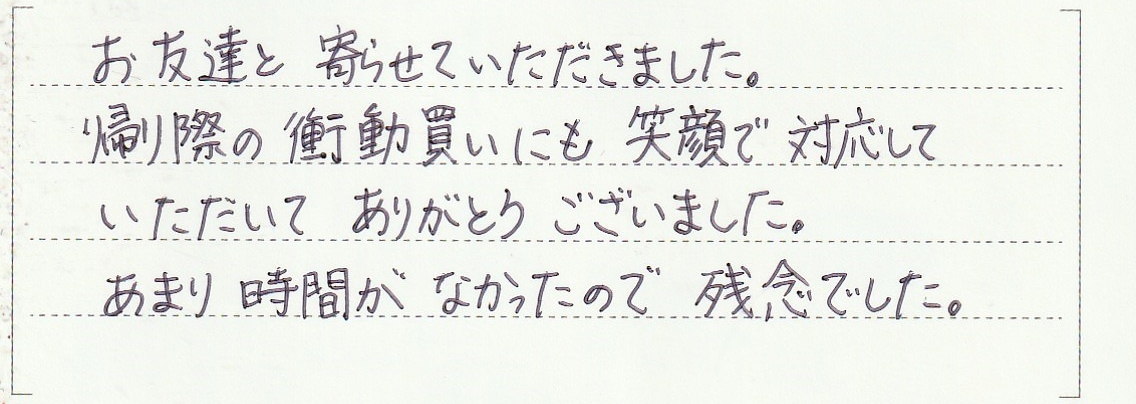 お友達と寄らせていただきました。
帰り際の衝動買いにも笑顔で対応して
いただいてありがとうございました。
あまり時間がなかったので残念でした。